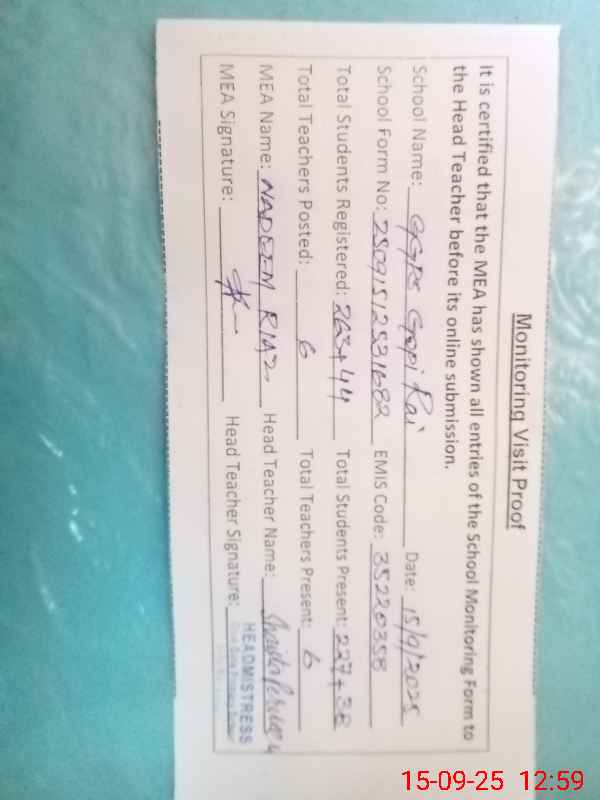 Monitoring Visit Proof
It is certified that the MEA has shown all entries of the School Monitoring Form to
the Head Teacher before its online submission.
School Name: GGPS Gopi Rai Date: 15/9/2025
School Form No: 25091512531682 EMIS Code: 35220358
Total Students Registered: 263+44 Total Students Present: 227+38
Total Teachers Posted: 6 Total Teachers Present: 6
MEA Name: NADEEM RIAZ Head Teacher Name:
MEA Signature: Head Teacher Signature:
HEADMISTRESS
15-09-25 12:59